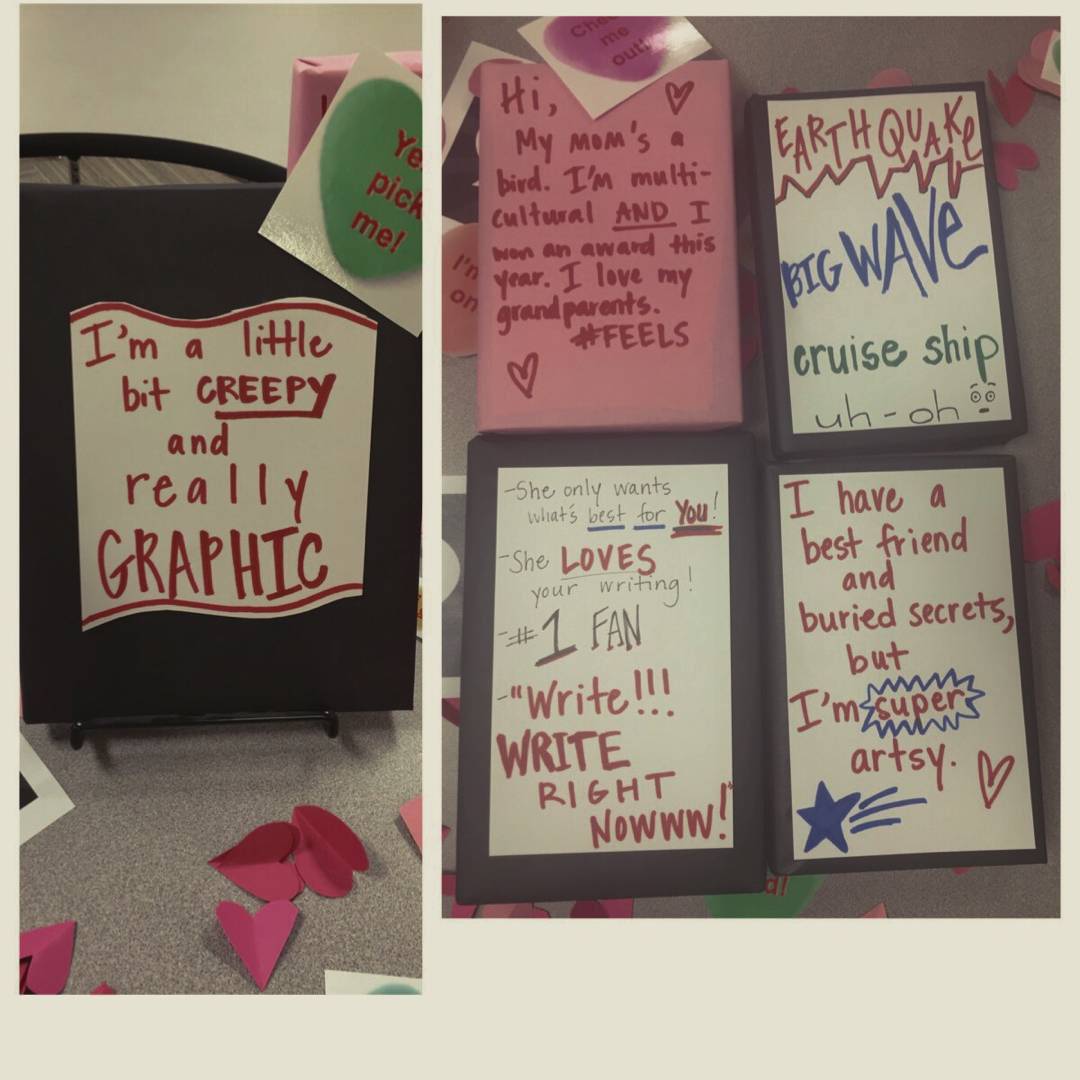 Ye
pick
me!
I'm a little
bit CREEPY
and
really
GRAPHIC
me
out!
Hi,
My mom's a
bird. I'm multi-
cultural AND I
won an award this
year. I love my
grandparents.
#FEELS
I'm
on
EARTHQUAKE
BIG WAVE
cruise ship
uh-oh
-She only wants
what's best for You!
-She LOVES
your writing!
-#1 FAN
-"Write!!!
WRITE
RIGHT
NOWWW!"
I have a
best friend
and
buried secrets,
but
I'm super
artsy.